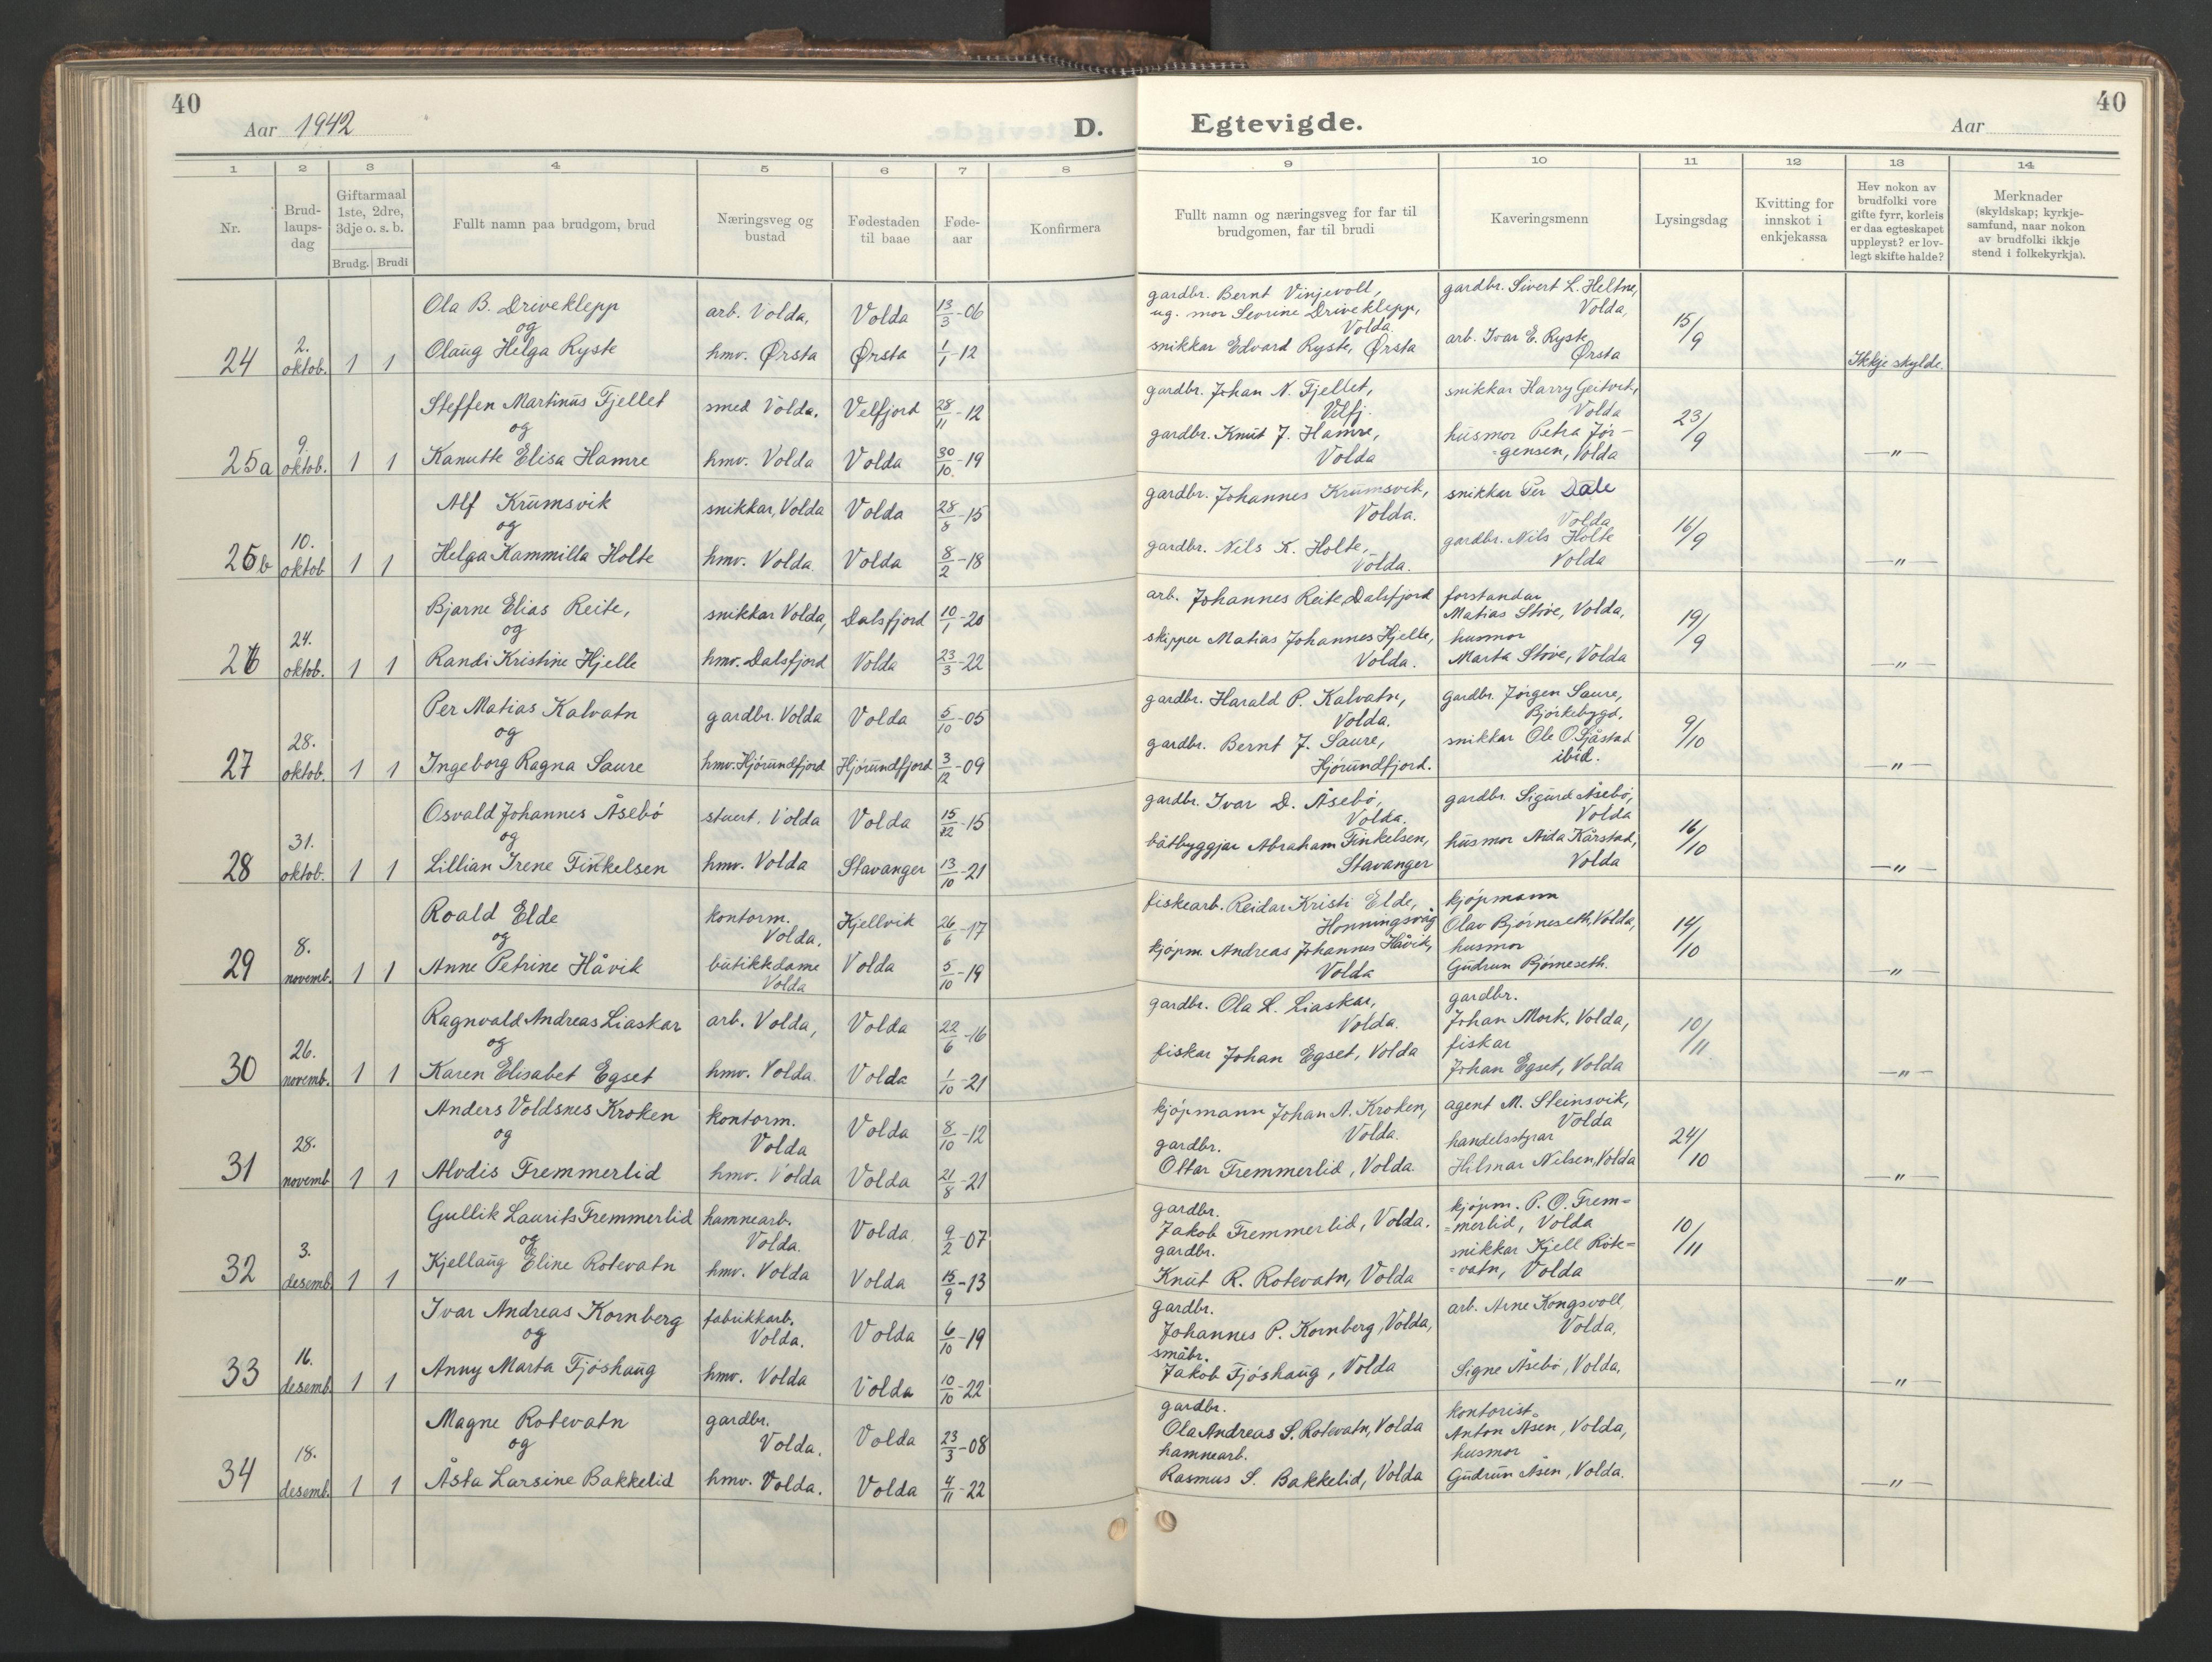 40
Aar 1942
D.
Egtevigde.
Aar
40
1 2 3 4 5 6 7 8 9 10 11 12 13 14
Nr.
Brud-
laups-
dag
Giftarmaal
1ste, 2dre,
3dje o. s. b.
Brudg. Brudi
Fullt namn paa brudgom, brud
Næringsveg og
bustad
Fødestaden
til baae
Føde-
aar
Konfirmera
Fullt namn og næringsveg for far til
brudgomen, far til brudi
Kaveringsmenn
Lysingsdag
Kvitting for
innskot i
enkjekassa
Hev nokon av
brudfolki vore
gifte fyrr, korleis
er daa egteskapet
uppleyst? er lov-
legt skifte halde?
Merknader
(skyldskap; kyrkje-
samfund, naar nokon
av brudfolki ikkje
stend i folkekyrkja).
24 2. oktob. 1 1
Ola B. Driveklepp arb. Volda, Volda 13/3-06
og
Olaug Helga Ryste hmv. Ørsta Ørsta 1/1-12
gardbr. Bernt Vinjevoll,
ug. mor Sevrine Driveklepp,
Volda.
snikkar Edvard Ryste, Ørsta
gardbr. Sivert L. Heltne,
Volda,
arb. Ivar E. Ryste
Ørsta
15/9
Ikkje skylde.
25a 9. oktob. 1 1
Steffen Martinus Fjellet smed Volda. Velfjord 28/11-12
og
Kanutte Elisa Hamre hmv. Volda Volda 30/10-19
gardbr. Johan N. Fjellet,
Velfj.
gardbr. Knut J. Hamre,
Volda
snikkar Harry Geitvik,
Volda
husmor Petra Jør-
=gensen, Volda
23/9
—"—
25b 10. oktob 1 1
Alf Krumsvik snikkar, Volda Volda 28/8-15
og
Helga Kammilla Holte hmv. Volda. Volda 8/2-18
gardbr. Johannes Krumsvik,
Volda.
gardbr. Nils K. Holte,
Volda.
snikkar Per Dale
Volda
gardbr. Nils Holte
Volda
16/9
—"—
26 24. oktob. 1 1
Bjarne Elias Reite, snikkar Volda, Dalsfjord 10/1-20
og
Randi Kristine Hjelle hmv. Dalsfjord Volda 23/3-22
arb. Johannes Reite, Dalsfjord
skipper Matias Johannes Hjelle,
Volda.
forstandar
Matias Støve, Volda,
husmor
Marta Støve, Volda
19/9
—"—
27 28. oktob. 1 1
Per Matias Kalvatn gardbr. Volda Volda 5/10-05
og
Ingeborg Ragna Saure hmv. Hjørundfjord Hjørundfjord 3/12-09
gardbr. Harald P. Kalvatn,
Volda.
gardbr. Bernt J. Saure,
Hjørundfjord.
gardbr. Jørgen Saure,
Bjørkebygd,
snikkar Ole O. Sjåstad
ibid.
9/10
—"—
28 31. oktob. 1 1
Osvald Johannes Åsebø stuert. Volda Volda 15/12-15
og
Lillian Irene Finkelsen hmv. Volda Stavanger 13/10-21
gardbr. Ivar D. Åsebø,
Volda.
båtbyggjar Abraham Finkelsen,
Stavanger
gardbr. Sigurd Åsebø,
Volda
husmor Aida Kårstad,
Volda
16/10
—"—
29 8. novemb. 1 1
Roald Elde kontorm. Volda. Kjellvik 26/6-17
og
Anne Petrine Håvik butikkdame Volda Volda 5/10-19
fiskearb. Reidar Kristi Elde,
Honningsvåg
kjøpm. Andreas Johannes Håvik,
Volda
kjøpmann
Olav Bjørneseth, Volda,
husmor
Gudrun Bjørneseth.
14/10
—"—
30 26. novemb. 1 1
Ragnvald Andreas Liaskar arb. Volda, Volda 22/6-16
og
Karen Elisabet Egset hmv. Volda. Volda 1/10-21
gardbr. Ola L. Liaskar,
Volda.
fiskar Johan Egset, Volda
gardbr.
Johan Mork, Volda,
fiskar
Johan Egset, Volda
10/11
—"—
31 28. novemb 1 1
Anders Voldsnes Kroken kontorm. Volda Volda 8/10-12
og
Alvdis Fremmerlid hmv. Volda Volda 21/8-21
kjøpmann Johan A. Kroken,
Volda.
gardbr.
Oltar Fremmerlid, Volda.
agent M. Steinsvik,
Volda
handelsstyrar
Hilmar Nilsen, Volda
24/10
—"—
32 3. desemb. 1 1
Gullik Laurits Fremmerlid hamnearb. Volda. Volda. 9/2-07
og
Kjellaug Eline Rotevatn hmv. Volda Volda 15/9-13
gardbr.
Jakob Fremmerlid, Volda.
gardbr.
Knut R. Rotevatn, Volda
kjøpm. P. O. Frem=
=merlid, Volda
snikkar Kjell Rote=
=vatn, Volda
10/11
—"—
33 16. desemb. 1 1
Ivar Andreas Kornberg fabrikkarb. Volda. Volda 6/10-19
og
Anny Marta Fjøshaug hmv. Volda Volda 10/10-22
gardbr.
Johannes P. Kornberg, Volda,
småbr.
Jakob Fjøshaug, Volda
arb. Arne Kongsvoll,
Volda,
Signe Åsebø, Volda,
—"—
34 18. desemb. 1 1
Magne Rotevatn gardbr. Volda. Volda 23/3-08
og
Åsta Larsine Bakkelid hmv. Volda. Volda 4/11-22
gardbr.
Ola Andreas S. Rotevatn, Volda
hamnearb.
Rasmus S. Bakkelid, Volda
kontorist
Anton Åsen, Volda,
husmor
Gudrun Åsen, Volda.
—"—